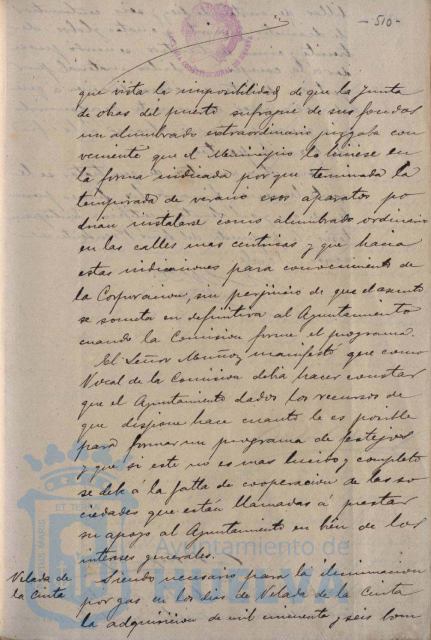 -510-
que vista la imposibilidad de que la Junta
de obras del puerto sufrague de sus fondos
un alumbrado extraordinario juzgaba con
veniente que el Municipio lo hiciese en
la forma indicada por que terminada la
temporada de verano esos aparatos po
drian instalarse como alumbrado ordinario
en las calles mas céntricas y que hacia
estas indicaciones para conocimiento de
la Corporacion, sin perjuicio de que el asunto
se someta en definitiva al Ayuntamiento
cuando la Comision forme el programa.
El Señor Muñoz manifestó que como
Vocal de la Comision debia hacer constar
que el Ayuntamiento dados los recursos de
que dispone hace cuanto le es posible
para formar un programa de festejos
y que si este no es mas lucido y completo
se debe á la falta de cooperacion de las so
ciedades que están llamadas á prestar
su apoyo al Ayuntamiento en bien de los
intereses generales.
Velada de
la Cinta
Siendo necesario para la iluminacion
por gas en los dias de Velada de la Cinta
la adquisicion de mil cincuenta y seis bom
Ayuntamiento de
HUELVA